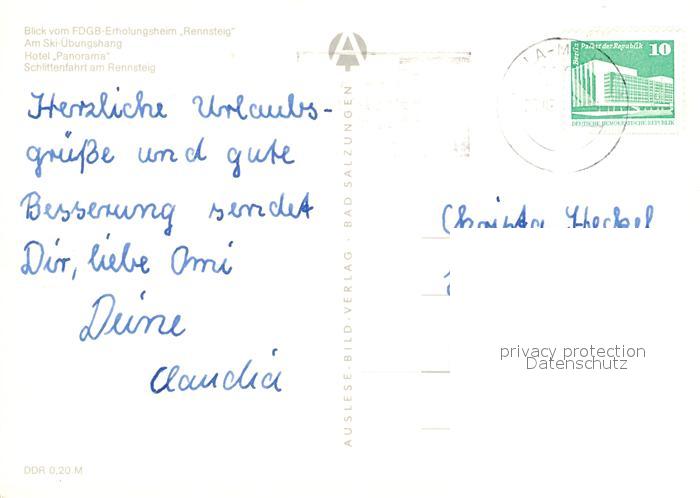 Blick vom FDGB-Erholungsheim „Rennsteig"
Am Ski-Übungshang
Hotel „Panorama"
Schlittenfahrt am Rennsteig
Herzliche Urlaubs-
grüße und gute
Besserung sendet
Dir, liebe Omi
Deine
Claudia
DDR 0,20 M
AUSLESE-BILD-VERLAG · BAD SALZUNGEN
Berlin, Palast der Republik 10
DEUTSCHE DEMOKRATISCHE REPUBLIK
privacy protection
Datenschutz